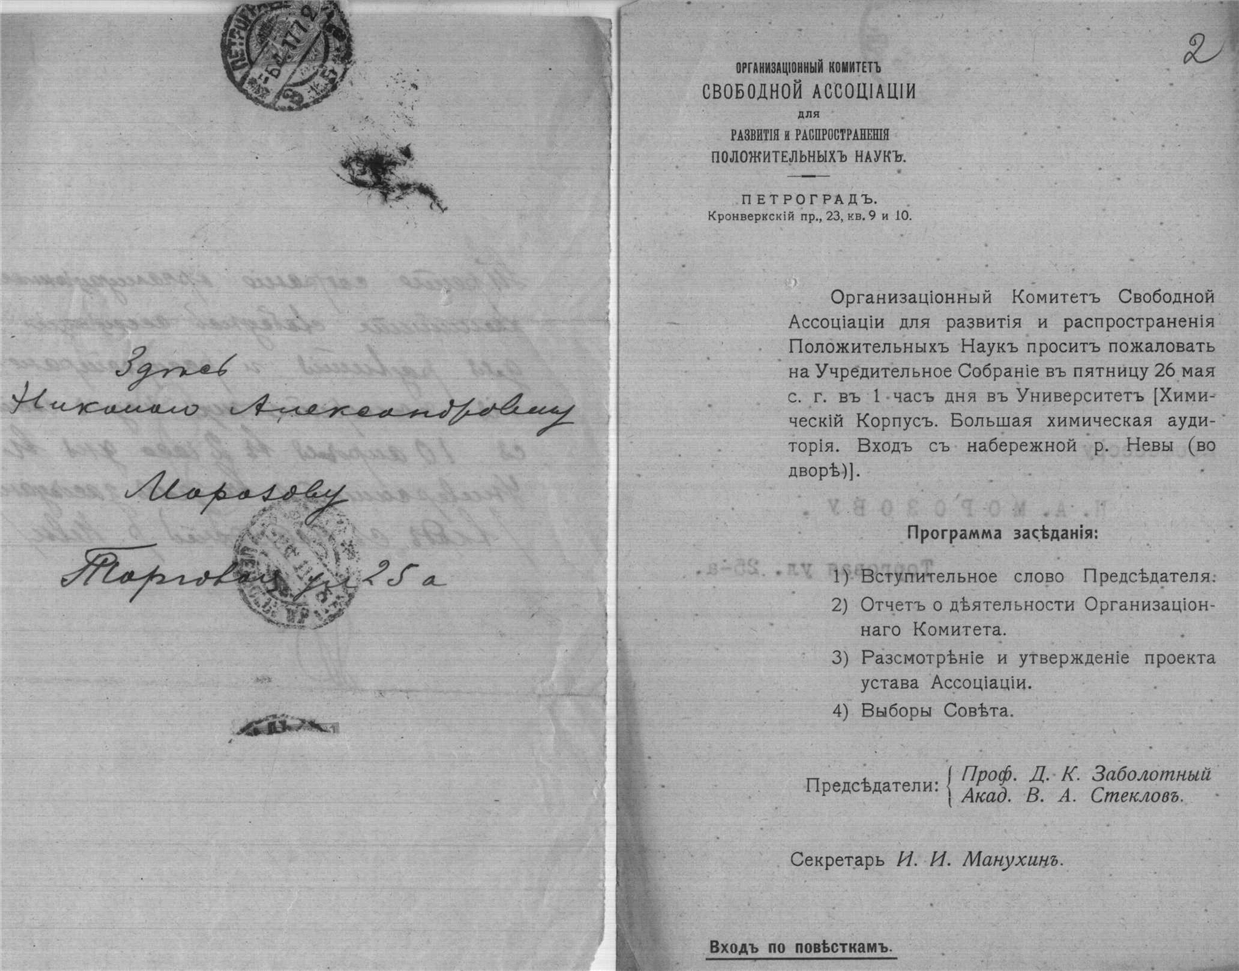 Здѣсь
Николаю Александровичу
Морозову
Торговая ул 25а
2
ОРГАНИЗАЦІОННЫЙ КОМИТЕТЪ
СВОБОДНОЙ АССОЦІАЦІИ
ДЛЯ
РАЗВИТІЯ и РАСПРОСТРАНЕНІЯ
ПОЛОЖИТЕЛЬНЫХЪ НАУКЪ.
ПЕТРОГРАДЪ.
Кронверкскій пр., 23, кв. 9 и 10.
Организаціонный Комитетъ Свободной
Ассоціаціи для развитія и распространенія
Положительныхъ Наукъ проситъ пожаловать
на Учредительное Собраніе въ пятницу 26 мая
с. г. въ 1 часъ дня въ Университетъ [Хими-
ческій Корпусъ. Большая химическая ауди-
торія. Входъ съ набережной р. Невы (во
дворѣ)].
Н. А. МОРОЗОВУ.
Программа засѣданія:
Торговая ул. 25-а.
1) Вступительное слово Предсѣдателя.
2) Отчетъ о дѣятельности Организаціон-
наго Комитета.
3) Разсмотрѣніе и утвержденіе проекта
устава Ассоціаціи.
4) Выборы Совѣта.
Предсѣдатели: { Проф. Д. К. Заболотный
Акад. В. А. Стекловъ.
Секретарь И. И. Манухинъ.
Входъ по повѣсткамъ.